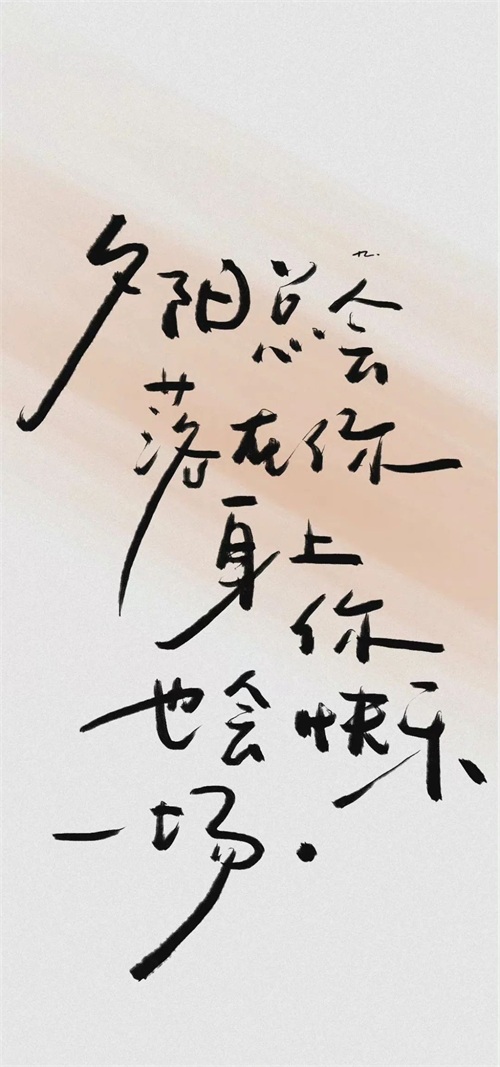 夕阳总会
落在你
身上你
也会快乐
一场.